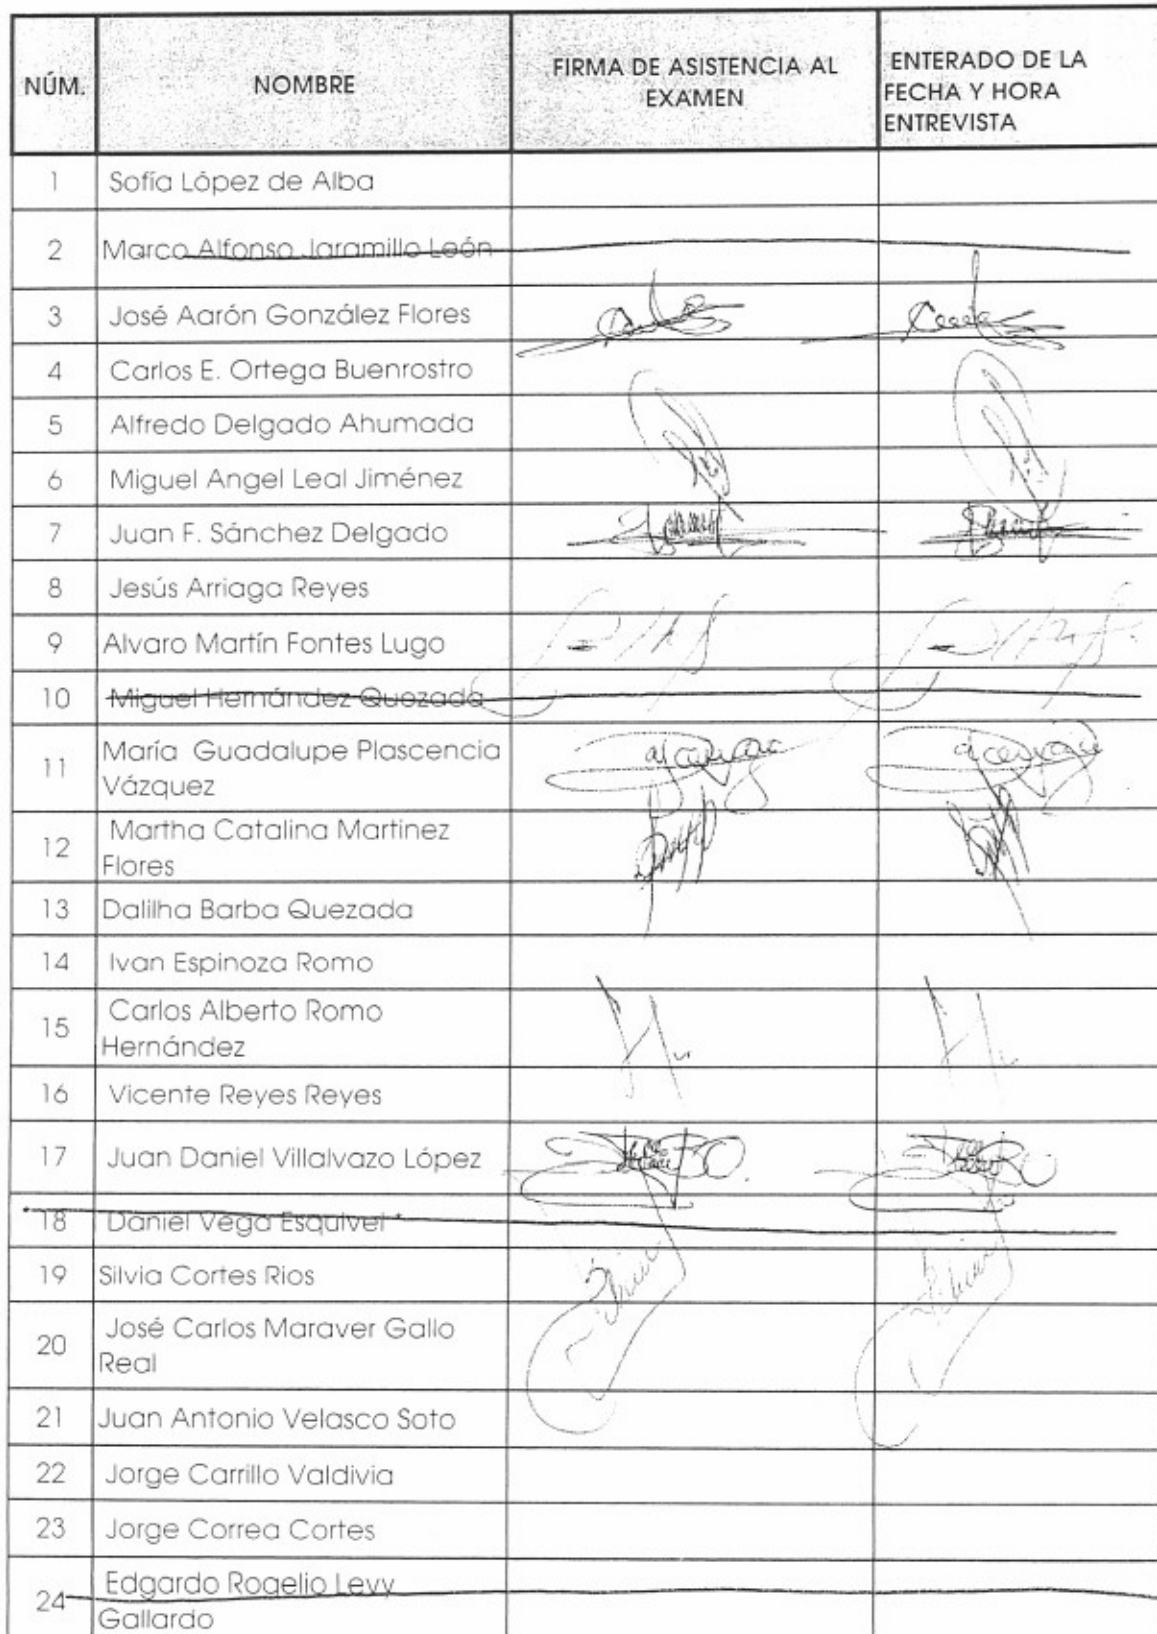 NÚM.
NOMBRE
FIRMA DE ASISTENCIA AL
EXAMEN
ENTERADO DE LA
FECHA Y HORA
ENTREVISTA
1 Sofía López de Alba
2 Marco Alfonso Jaramillo León
3 José Aarón González Flores
4 Carlos E. Ortega Buenrostro
5 Alfredo Delgado Ahumada
6 Miguel Angel Leal Jiménez
7 Juan F. Sánchez Delgado
8 Jesús Arriaga Reyes
9 Alvaro Martín Fontes Lugo
10 Miguel Hernández Quezada
11 María Guadalupe Plascencia
Vázquez
12 Martha Catalina Martinez
Flores
13 Dalilha Barba Quezada
14 Ivan Espinoza Romo
15 Carlos Alberto Romo
Hernández
16 Vicente Reyes Reyes
17 Juan Daniel Villalvazo López
18 Daniel Vega Esquivel
19 Silvia Cortes Rios
20 José Carlos Maraver Gallo
Real
21 Juan Antonio Velasco Soto
22 Jorge Carrillo Valdivia
23 Jorge Correa Cortes
24 Edgardo Rogelio Levy
Gallardo